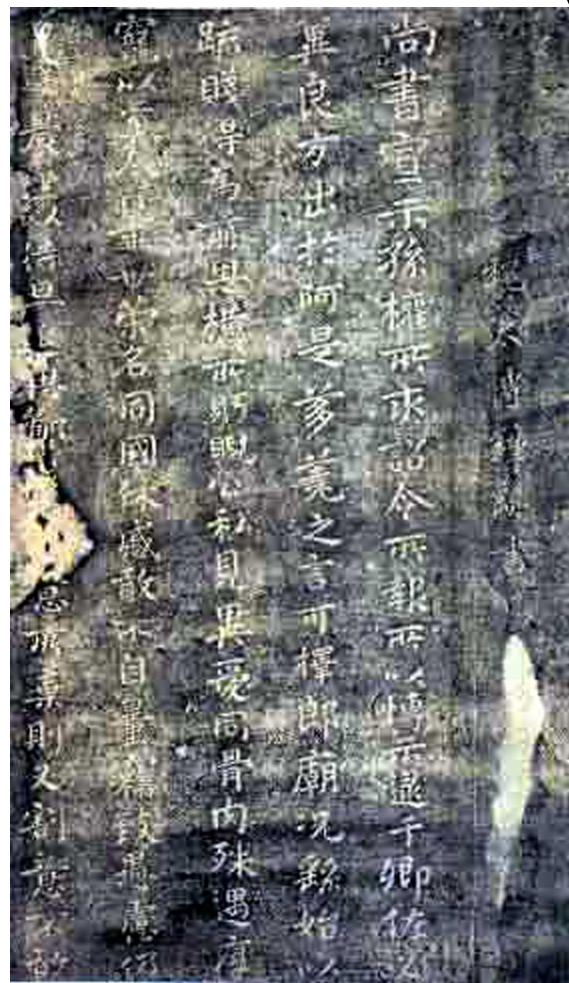 太傅鍾繇書
尚書宣示孫權所求詔令所報所以博示逮于卿佐必
冀良方出於阿是芻蕘之言可擇郎廟況繇始以
疏賤得為前恩橫所盼睨公私見異愛同骨肉殊遇厚
寵以至今日再世榮名同國休慼敢不自量竊致愚慮仍
日達晨坐以待旦退思鄙意所棄則又割意不敢